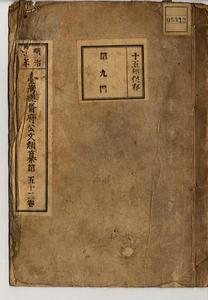 05312
十五年保存
第九門
明治
臺灣總督府公文類纂第五十二卷